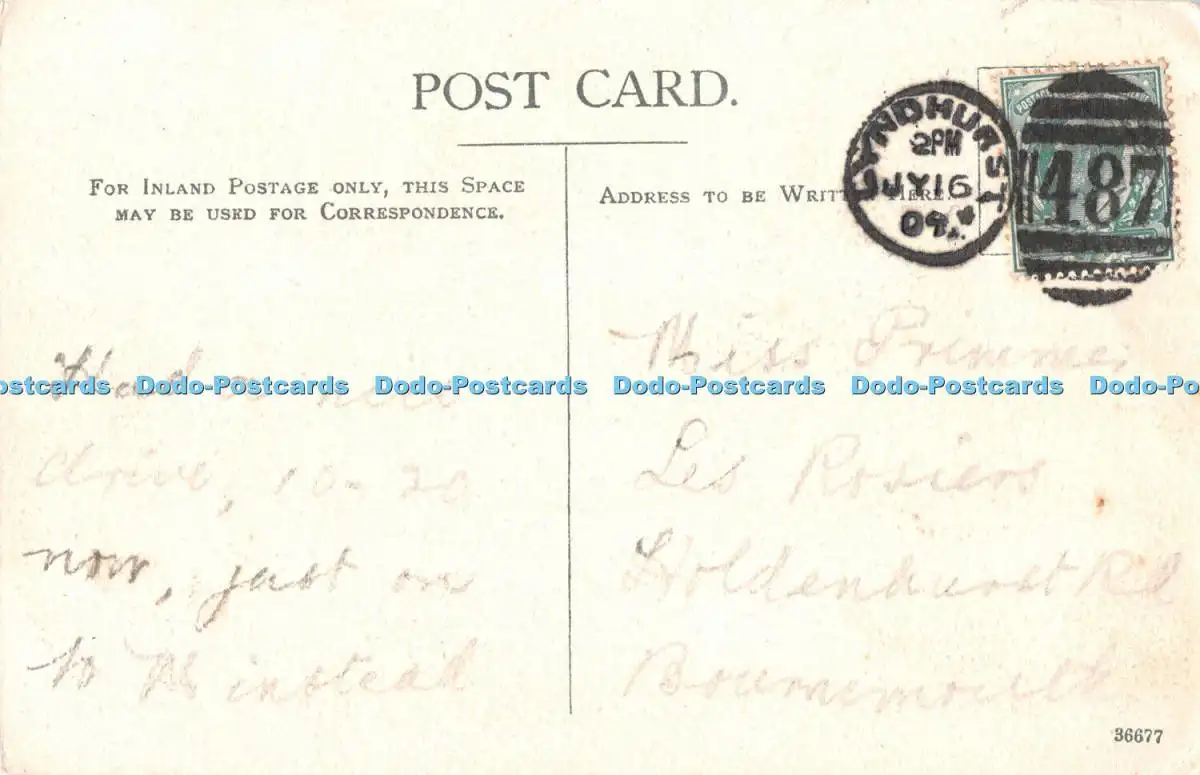 POST CARD.
FOR INLAND POSTAGE ONLY, THIS SPACE
MAY BE USED FOR CORRESPONDENCE.
ADDRESS TO BE WRITTEN HERE.
LYNDHURST
2PM
JY 16
09
487
POSTAGE
Had a nice
drive, 10-20
now, just on
to Minstead
Miss Primmer
Les Rosiers
Holdenhurst Rd
Bournemouth
Dodo-Postcards Dodo-Postcards Dodo-Postcards Dodo-Postcards
36677